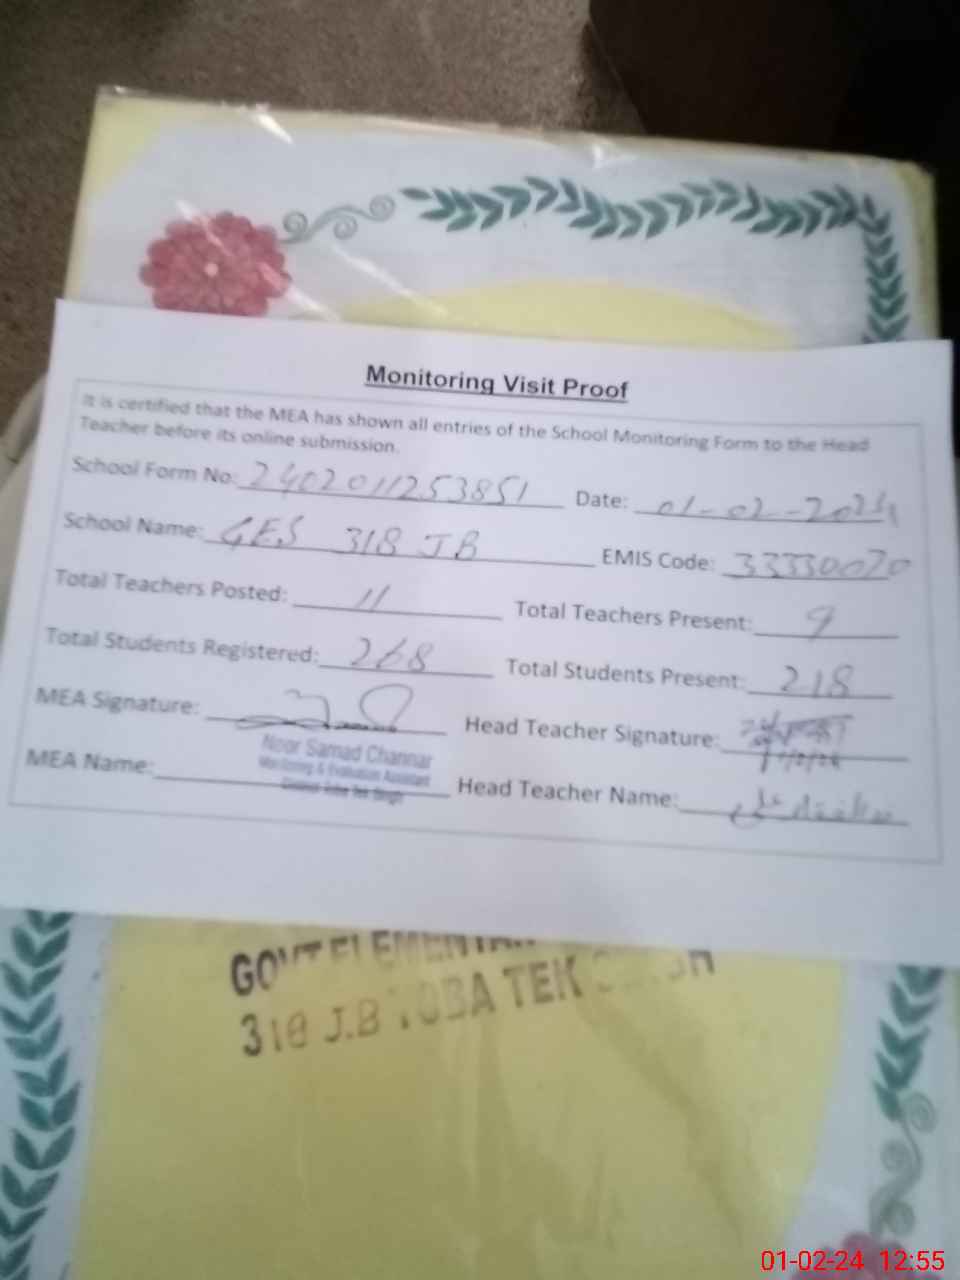 Monitoring Visit Proof
It is certified that the MEA has shown all entries of the School Monitoring Form to the Head
Teacher before its online submission.
School Form No: 2402011253851 Date: 01-02-2024
School Name: GES 318 JB EMIS Code: 33330070
Total Teachers Posted: 11 Total Teachers Present: 9
Total Students Registered: 268 Total Students Present: 218
MEA Signature: Head Teacher Signature:
Noor Samad Channar
Monitoring & Evaluation Assistant
MEA Name: Head Teacher Name:
GOVT ELEMENTAR
318 J.B TOBA TEK
01-02-24 12:55